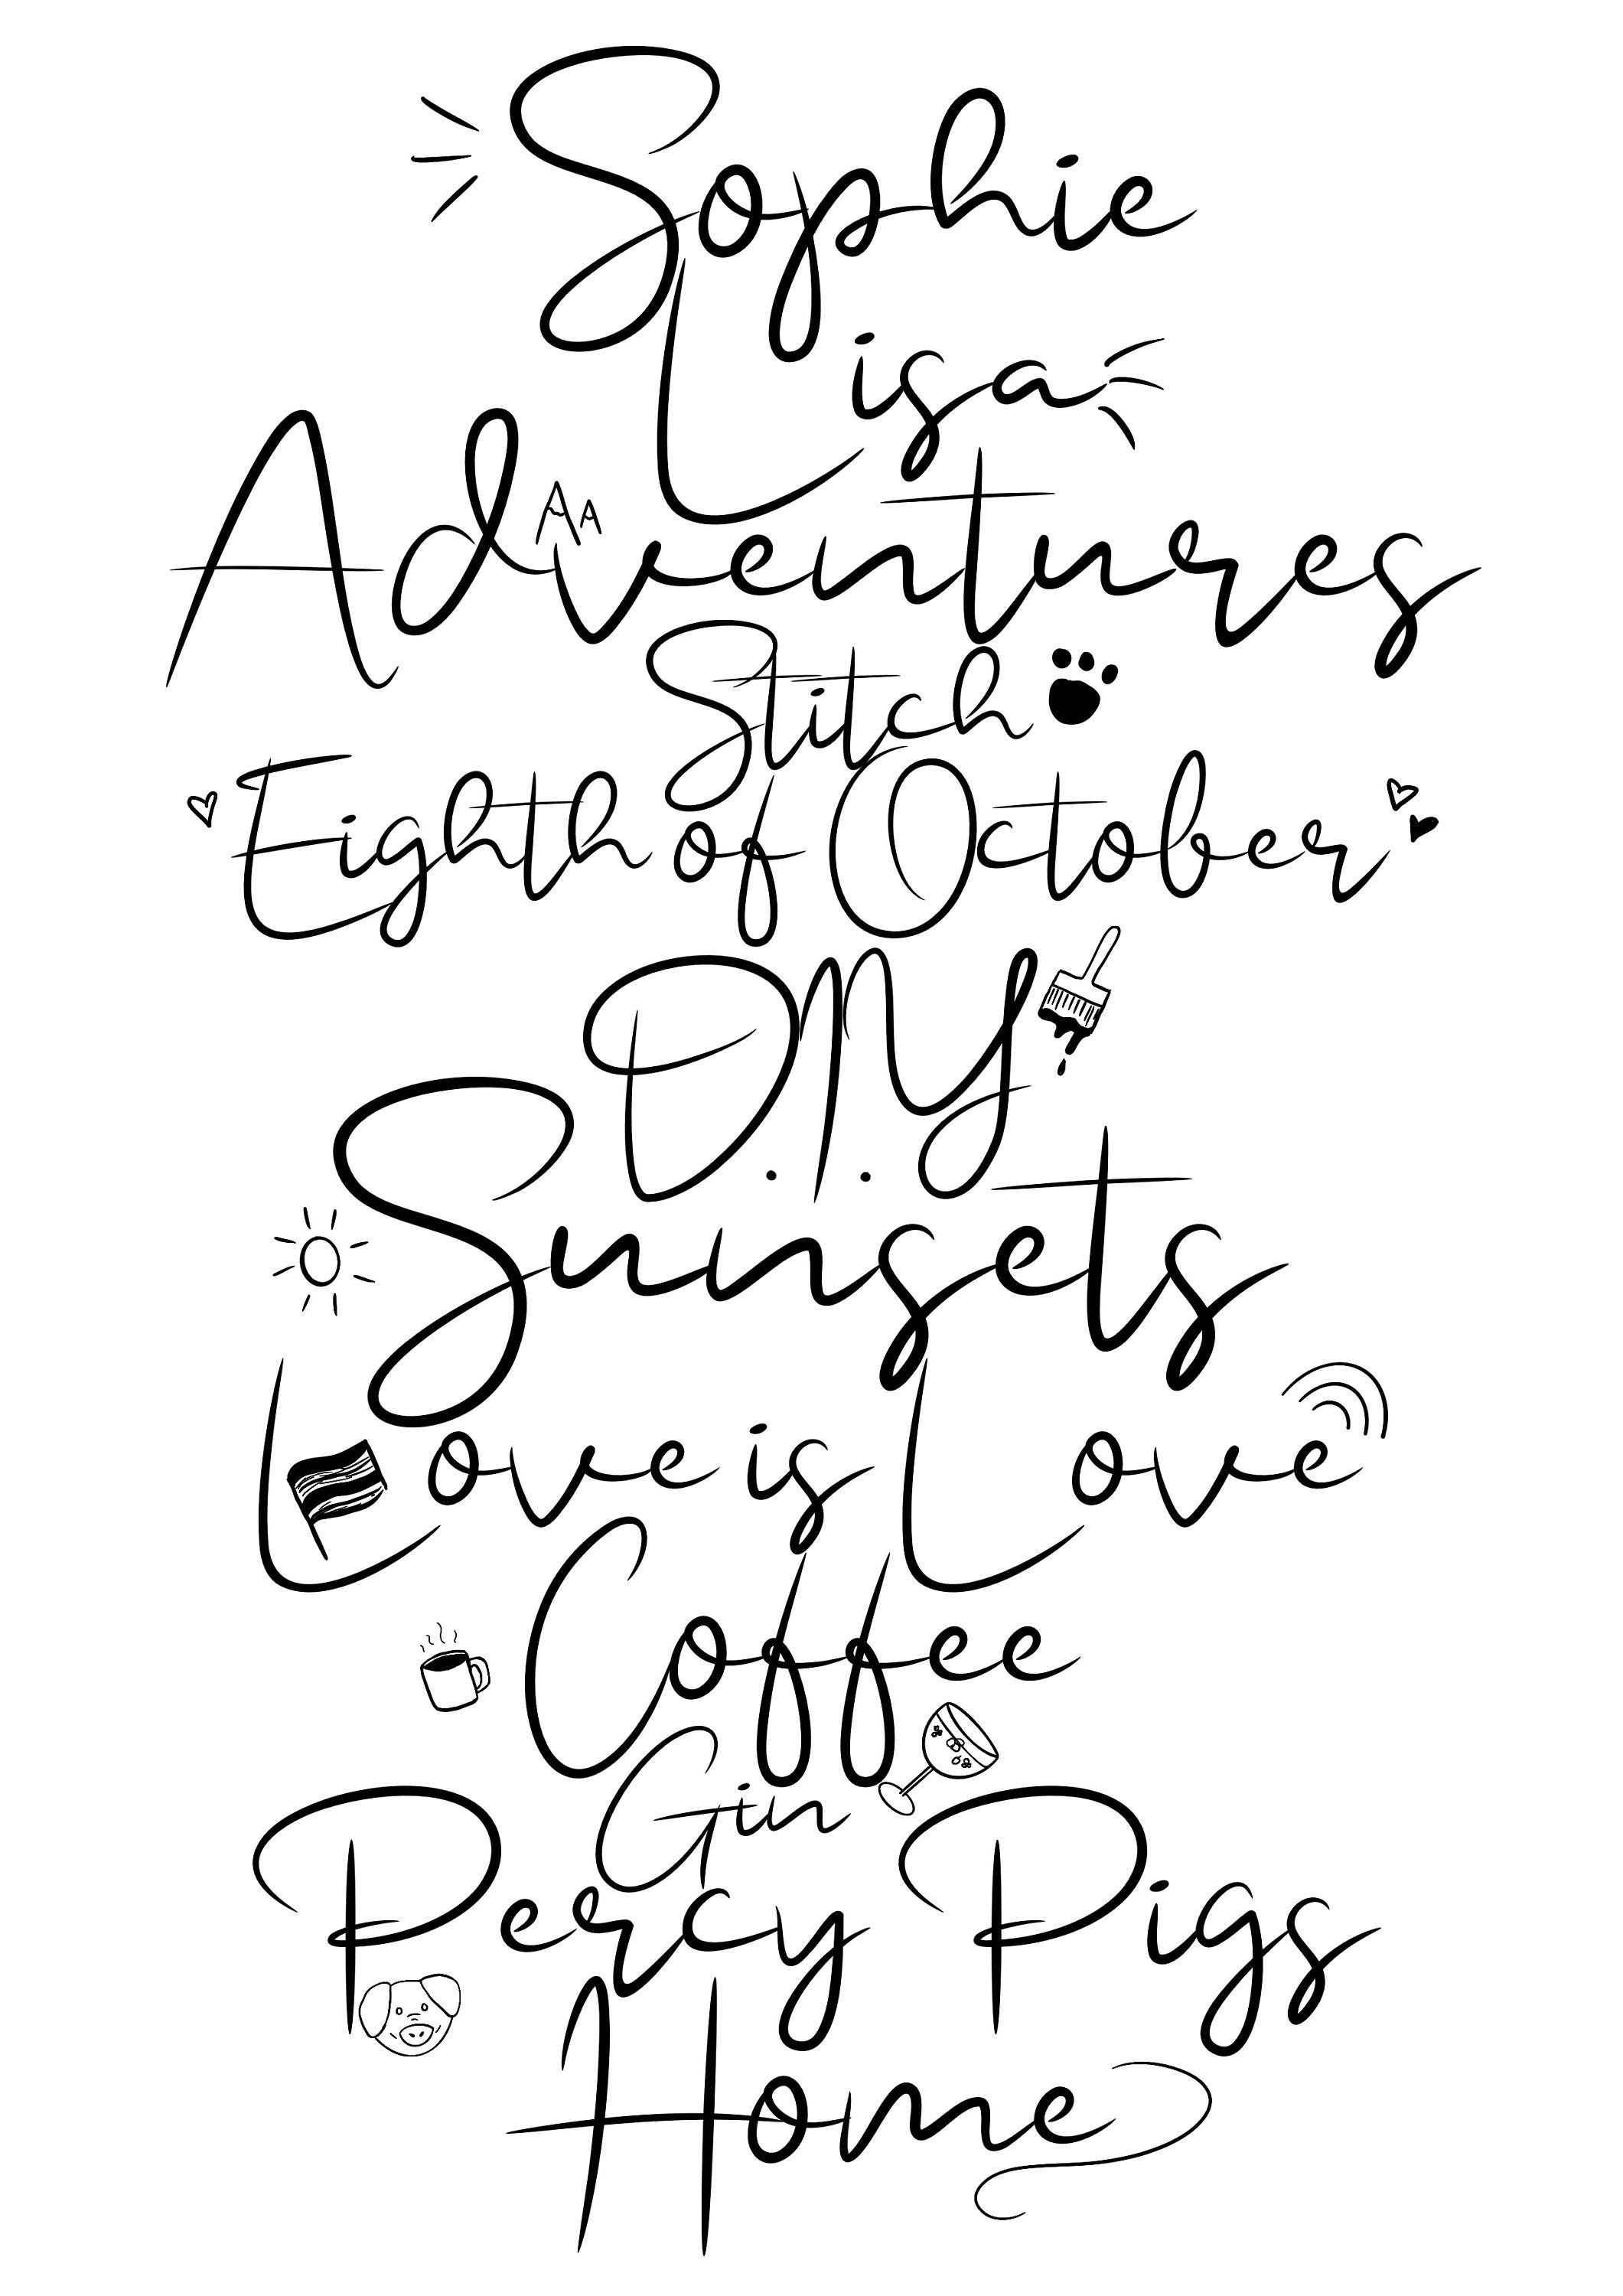 Sophie
Lisa
Adventures
Stitch
Eighth of October
D.I.Y
Sunsets
Love is Love
Coffee
Gin
Percy Pigs
Home